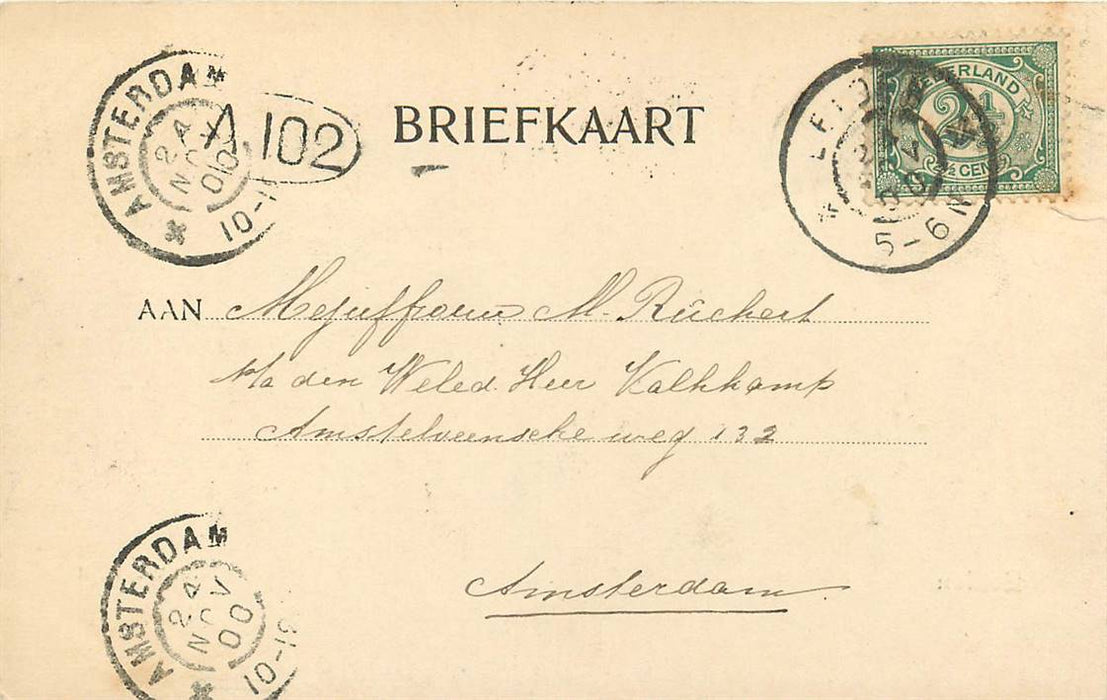 AMSTERDAM
24 NOV 00
10-1
A 102
BRIEFKAART
NEDERLAND
2½ CENT
5-6N
AAN Mejuffrouw M. Rückert
p/a den Weled. Heer Kalkkamp
Amstelveensche weg 132
Amsterdam
AMSTERDAM
24 NOV 00